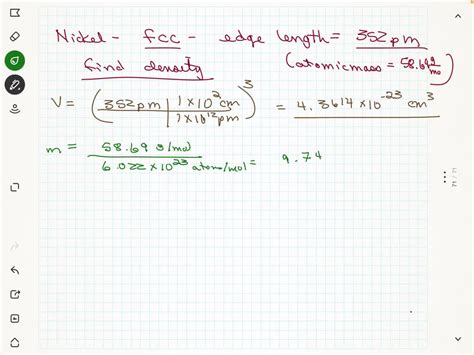 Nickel - fcc - edge length = 352pm
find density (atomic mass = 58.69 g/mo
V = (352pm | 1 x 10² cm / 1 x 10¹² pm)³ = 4.3614 x 10⁻²³ cm³
m = 58.69 g/mol / 6.022 x 10²³ atom/mol = 9.74